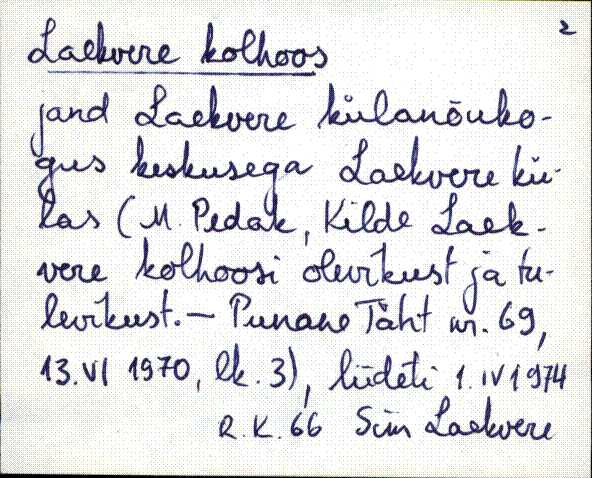 2
Laekvere kolhoos
jand Laekvere külanõuko-
gus keskusega Laekvere kü-
las (M. Pedak, Kilde Laek-
vere kolhoosi olevikust ja tu-
levikust. — Punane Täht nr. 69,
13. VI 1970, lk. 3), liideti 1. IV 1974
R.K. 66 Sim Laekvere